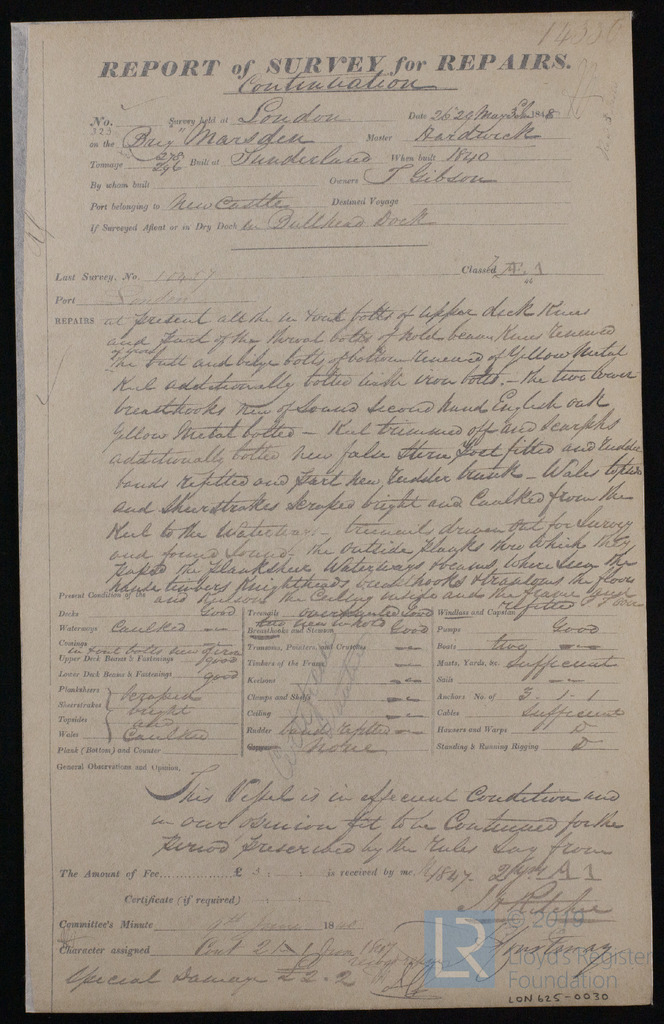 REPORT of SURVEY for REPAIRS.
Continuation
No. 323 Survey held at London Date 26 29 May 1848
on the Brig "Marsden Master Hardwick
Tonnage 278 296 Built at Sunderland When built 1840
By whom built Owners T Gibson
Port belonging to Newcastle Destined Voyage
If Surveyed Afloat or in Dry Dock in Bullhead Dock
Last Survey, No. Classed A 1
Port London
REPAIRS at present all the in & out bolts of upper deck Knees
and part of the throat bolts of hold beam Knees renewed
the butt and bilge bolts of bottom renewed of Yellow Metal
Keel additionally bolted with iron bolts. - The two lower
breasthooks new of sound second hand English oak
Yellow Metal bolted - Keel trimmed off and Scarphs
additionally bolted new false Stern Post fitted and Rudder
bands refitted and part new, rudder trunk - Wales topsides
and Sheerstrakes Scraped bright and Caulked from the
Keel to the Waterways - treenails driven out for Survey
and found Sound. the outside planks thro which they
passed the plankshear Waterways & beams, where seen the
Knightheads hooks & transoms the floors
and the Ceiling inside and the frame
Present Condition of the
Decks Good
Waterways Caulked
Comings
in & out bolts new of iron
Upper Deck Beams & Fastenings good
Lower Deck Beams & Fastenings good
Plankshears Scraped
Sheerstrakes bright
Topsides and
Wales Caulked
Plank (Bottom) and Counter
Treenails Good
Breasthooks and Stemson Good
Transoms, Pointers, and Crutches
Timbers of the Frame
Keelsons
Clamps and Shelfs
Ceiling
Rudder bands refitted
Copper none
Windlass and Capstan refitted
Pumps Good
Boats two
Masts, Yards, &c. Sufficient
Sails
Anchors No. of 3. 1. 1
Cables Sufficient
Hawsers and Warps Do
Standing & Running Rigging Do
General Observations and Opinion,
This Vessel is in efficient Condition and
in our opinion fit to be Continued for the
Period prescribed by the rules say from
The Amount of Fee............ £ : : is received by me, 1847. 2 yrs A 1
Certificate (if required) : :
Committee's Minute 184
Character assigned Cont 2 A 1 from 1847
Special Damage £2.2
© 2019
LR
Lloyd's Register
Foundation
LON 625-0030